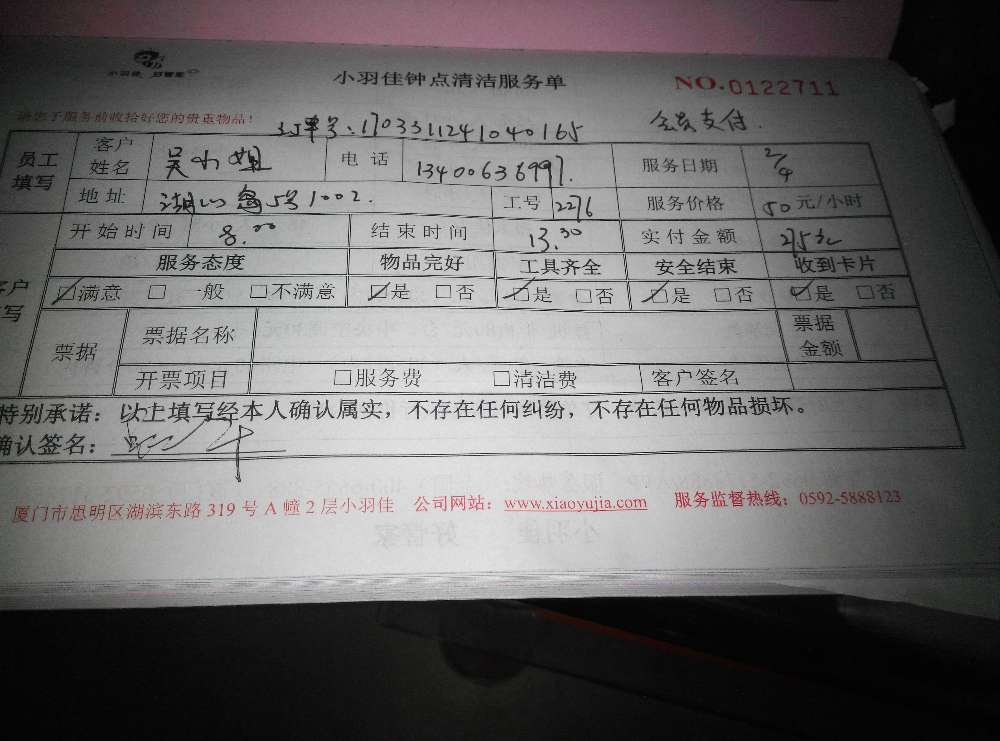 小羽佳 好管家
小羽佳钟点清洁服务单 NO.0122711
请您于服务前收拾好您的贵重物品! 订单号:1703311241040165 会员支付.
员工填写 客户姓名 吴小姐 电话 13400636997. 服务日期 2/4
地址 5号1002. 工号 2276 服务价格 50元/小时
开始时间 8.00 结束时间 13.30 实付金额 275元
服务态度 物品完好 工具齐全 安全结束 收到卡片
☑满意 □一般 □不满意 ☑是 □否 ☑是 □否 ☑是 □否 ☑是 □否
票据 票据名称 票据金额
开票项目 □服务费 □清洁费 客户签名
特别承诺:以上填写经本人确认属实,不存在任何纠纷,不存在任何物品损坏。
确认签名:
厦门市思明区湖滨东路319号A幢2层小羽佳 公司网站:www.xiaoyujia.com 服务监督热线:0592-5888123
小羽佳 好管家